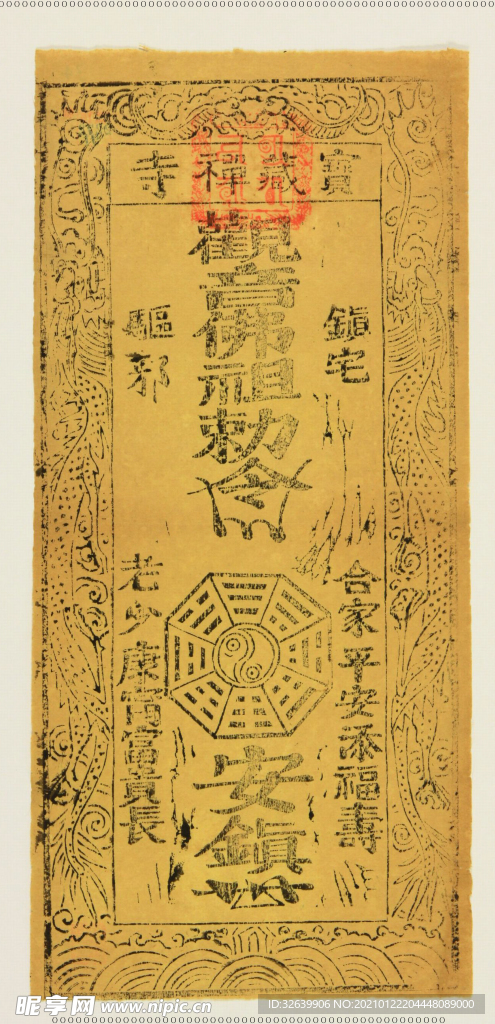 寶藏禪寺
鎮宅
合家平安添福壽
觀音佛祖勅令
安鎮
驅邪
老少康寧富貴長
昵享网 www.nipic.cn
ID:32639906 NO:20210122204448089000